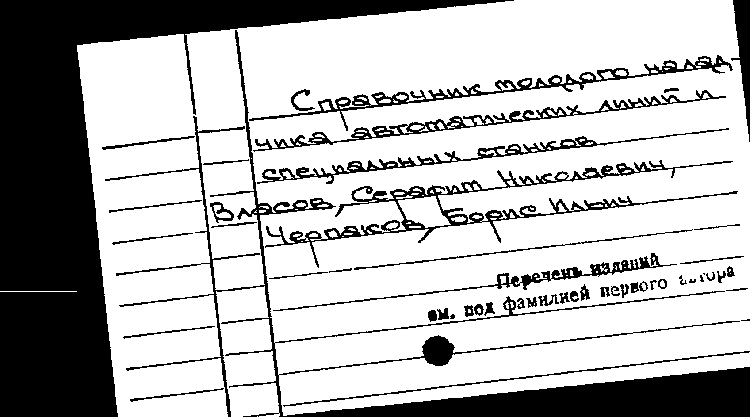 Справочник молодого налад-
чика автоматических линий и
специальных станков.
Власов, Серафим Николаевич,
Черпаков, Борис Ильич
Перечень изданий
см. под фамилией первого автора